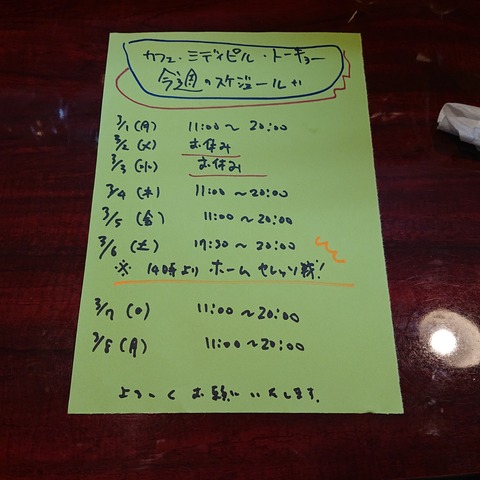 カフェ・ミディピル・トーキョー
今週のスケジュール
3/1(月) 11:00〜20:00
3/2(火) お休み
3/3(水) お休み
3/4(木) 11:00〜20:00
3/5(金) 11:00〜20:00
3/6(土) 17:30〜20:00
※ 14時よりホームセレッソ戦!
3/7(日) 11:00〜20:00
3/8(月) 11:00〜20:00
よろしくお願いいたします。